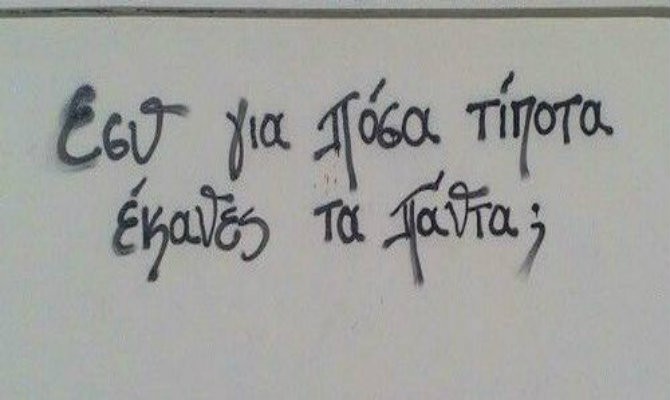 Εσυ για πόσα τίποτα
έκανες τα πάντα;